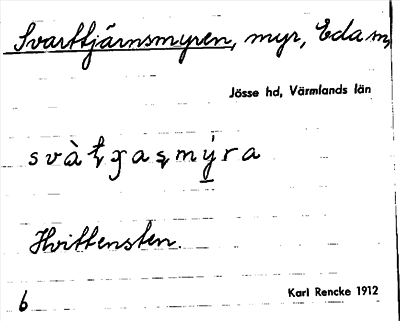 Svarttjärnsmyren, myr, Eda sn,
Jösse hd, Värmlands län
Hvittensten.
6
Karl Rencke 1912